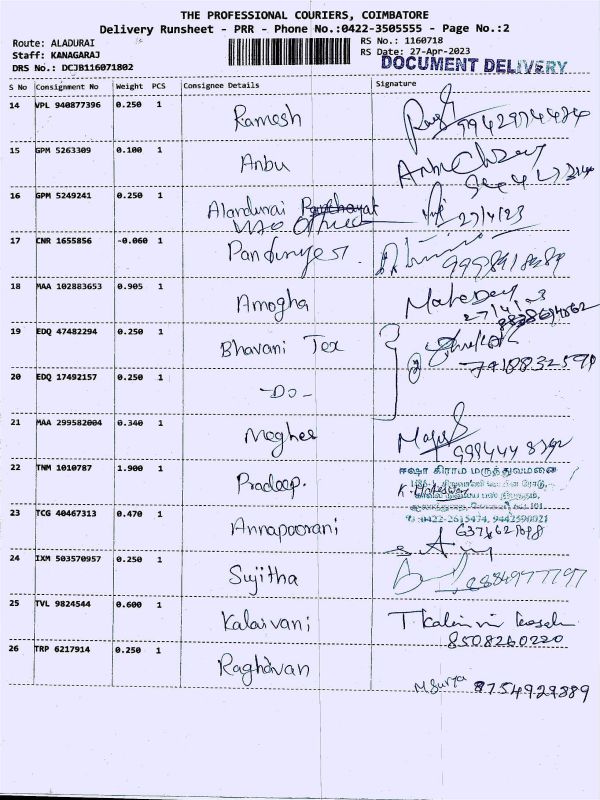 THE PROFESSIONAL COURIERS, COIMBATORE
Delivery Runsheet - PRR - Phone No.:0422-3505555 - Page No.:2
Route: ALADURAI
Staff: KANAGARAJ
DRS No.: DCJB116071802
RS No.: 1160718
RS Date: 27-Apr-2023
DOCUMENT DELIVERY
S No Consignment No Weight PCS Consignee Details Signature
14 VPL 940877396 0.250 1 Ramesh
15 GPM 5263309 0.100 1 Anbu
16 GPM 5249241 0.250 1 Alandurai Panchayat
VAO Office 27/4/23
17 CNR 1655856 -0.060 1
18 MAA 102883653 0.905 1 Amogha
27/4/23
19 EDQ 47482294 0.250 1 Bhavani Tex
7418832590
20 EDQ 17492157 0.250 1 -Do-
21 MAA 299582004 0.340 1 Meghee
22 TNM 1010787 1.900 1 Pradeep.
ஈஷா கிராம மருத்துவமனை
:0422-2615474, 9442590021
23 TCG 40467313 0.470 1 Annapoorani
24 IXM 503570957 0.250 1 Sujitha
25 TVL 9824544 0.600 1 Kalaivani
8508260220
26 TRP 6217914 0.250 1 Raghavan
M Surya 8754929889